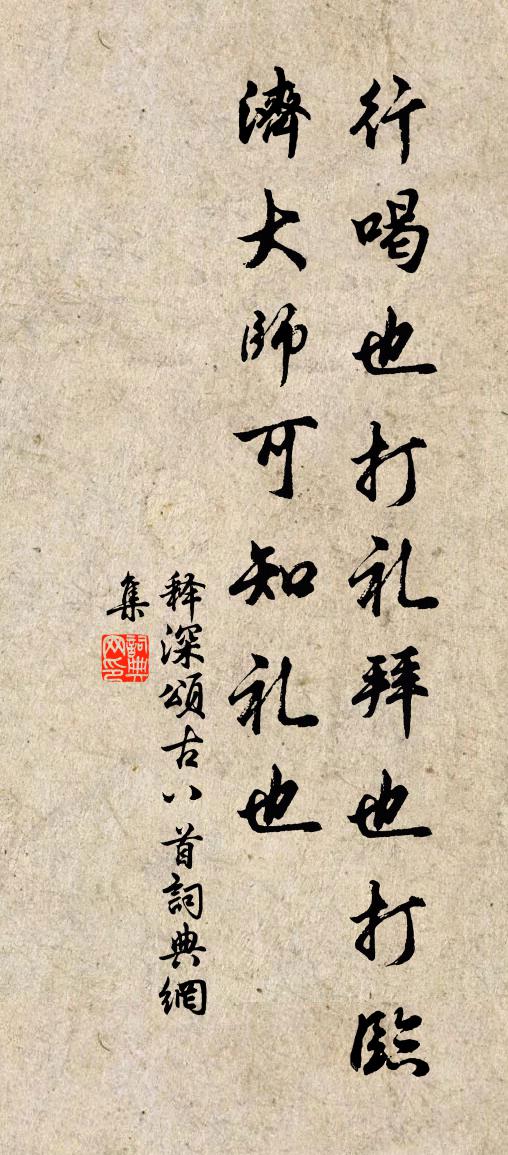 行喝也打礼拜也打臨
濟大師可知礼也
释深頌古八首詞典網
集
詞典
网印